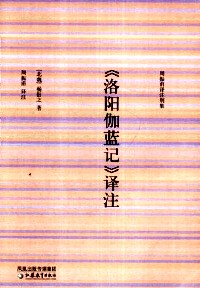 周振甫译注别集
《洛阳伽蓝记》译注
[北魏] 杨衒之 著
周振甫 译注
凤凰出版传媒集团
江苏教育出版社